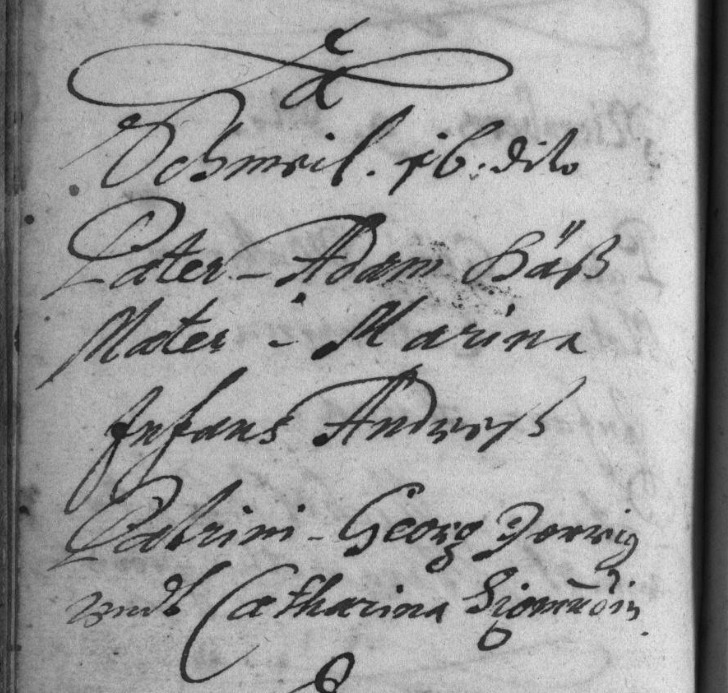 Schweil. 16. dito
Pater - Adam Häß
Mater - Marina
Infans Andreß
Patrini - Georg Herrig
undt Catharina Sigmūdin.